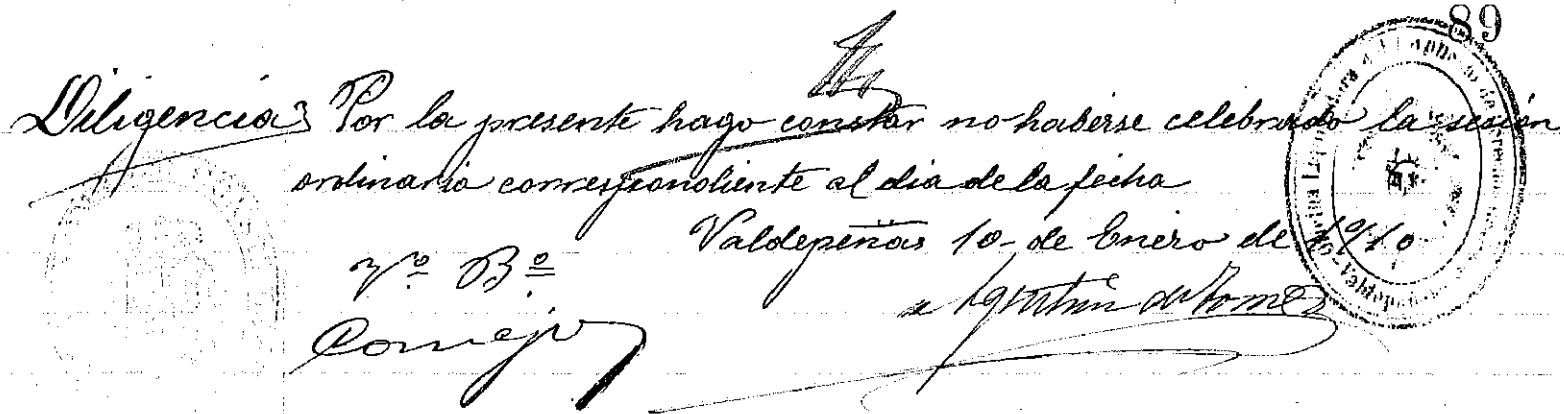 89
Diligencia Por la presente hago constar no haberse celebrado la sesión
ordinaria correspondiente al dia de la fecha
Valdepeñas 10 de Enero de 1910
Vº Bº
Cornejo
Agustin de